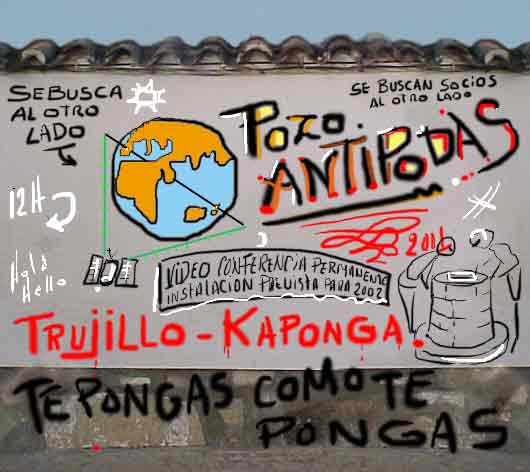 SE BUSCA
AL OTRO
LADO
SE BUSCAN SOCIOS
AL OTRO LADO
POZO.
ANTIPODAS
12H
Hola
Hello
2001
VIDEO CONFERENCIA PERMANENTE
INSTALACION PREVISTA PARA 2002
TRUJILLO - KAPONGA.
TE PONGAS COMO TE
PONGAS